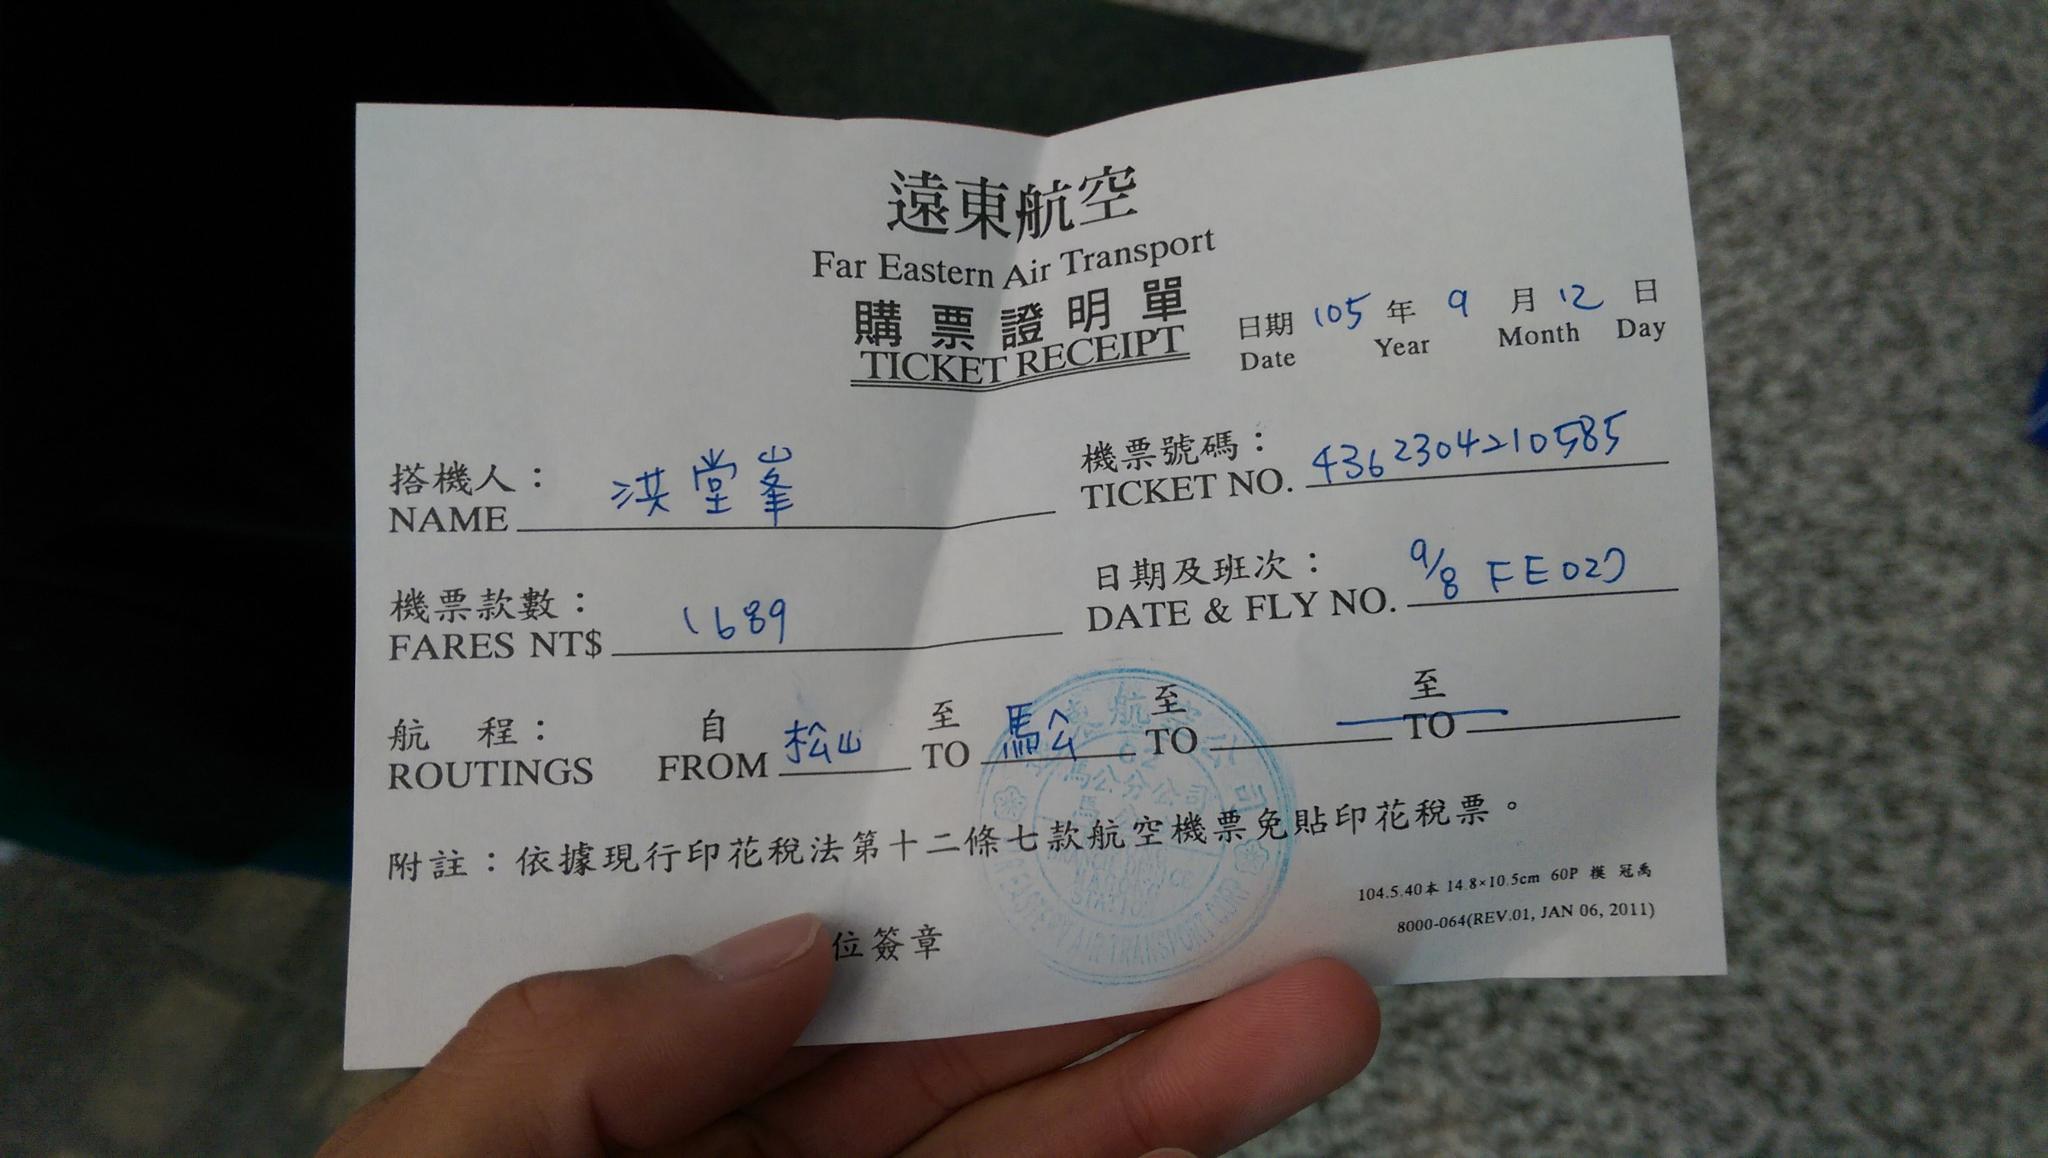 遠東航空
Far Eastern Air Transport
購票證明單
TICKET RECEIPT
日期 105 年 9 月 12 日
Date Year Month Day
搭機人： 洪堂峯
NAME
機票號碼： 4362304210585
TICKET NO.
機票款數： 1689
FARES NT$
日期及班次： 9/8 FE027
DATE & FLY NO.
航 程： 自 松山 至 馬公 至 至
ROUTINGS FROM TO TO TO
附註：依據現行印花稅法第十二條七款航空機票免貼印花稅票。
104.5.40本 14.8×10.5cm 60P 模 冠禹
8000-064(REV.01, JAN 06, 2011)
位簽章
馬公分公司
FAR EASTERN AIR TRANSPORT CORP